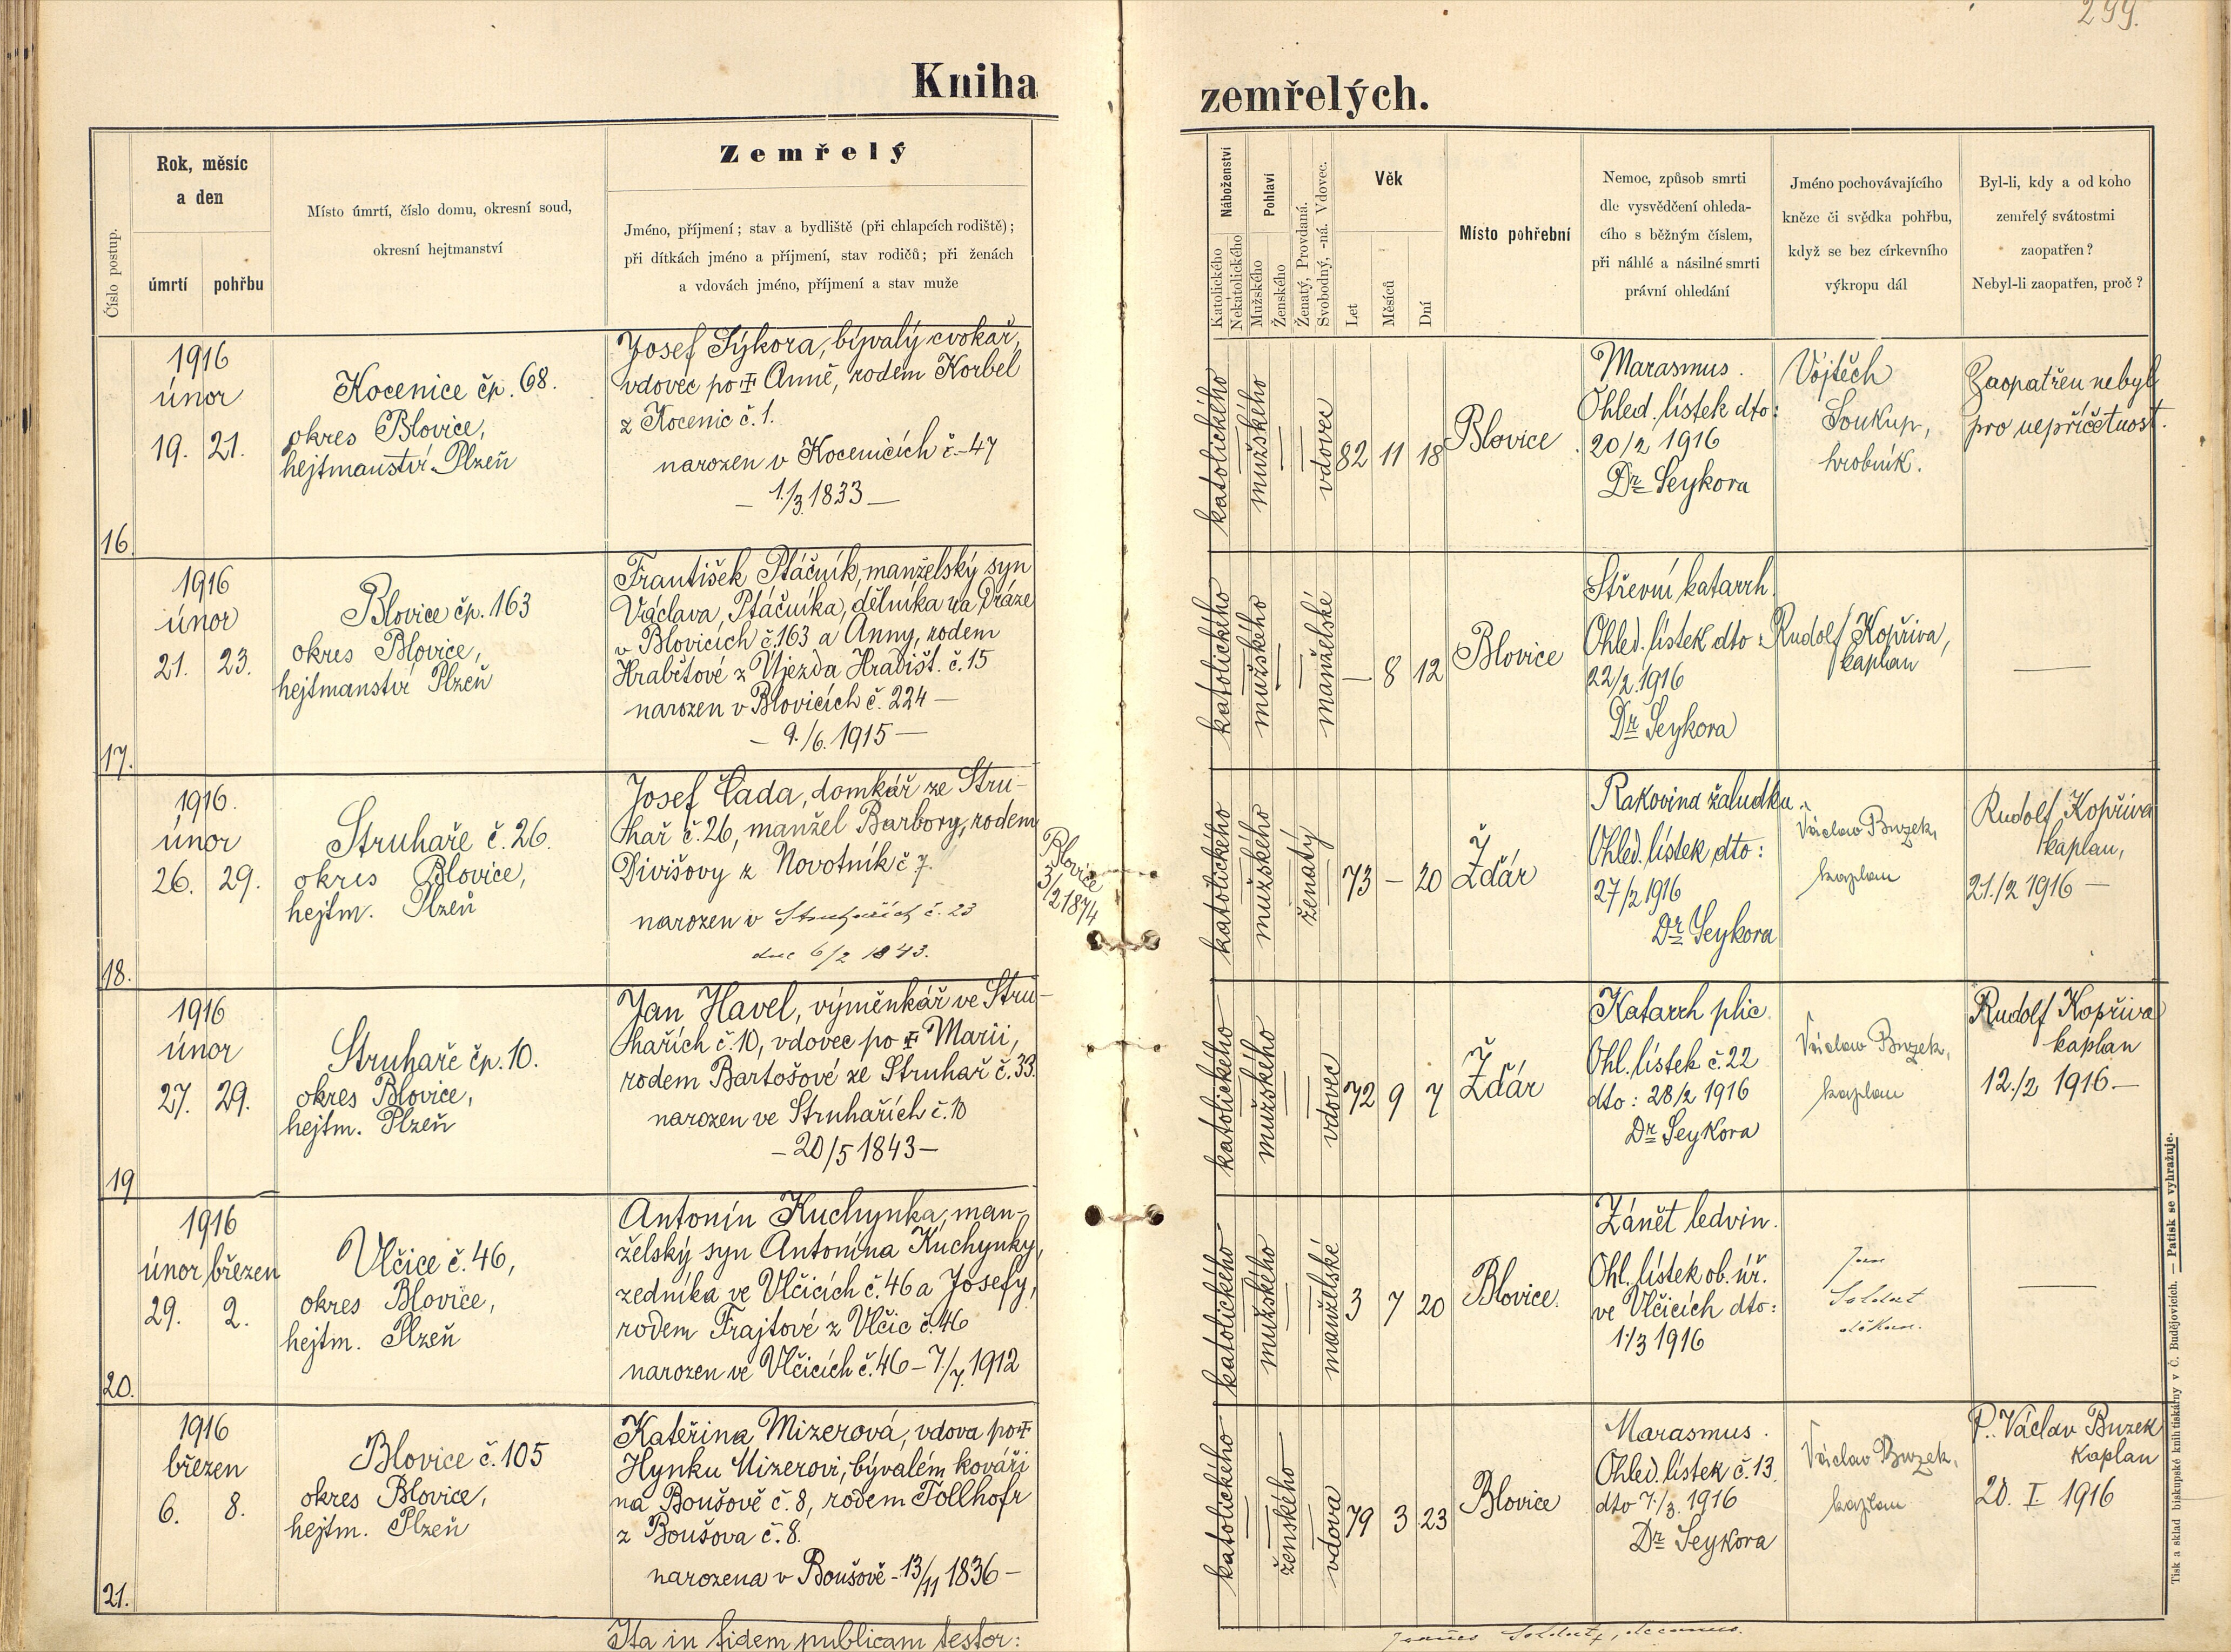 299.
Kniha zemřelých.
Číslo postup.
Rok, měsíc
a den
úmrtí
pohřbu
Místo úmrtí, číslo domu, okresní soud,
okresní hejtmanství
Zemřelý
Jméno, příjmení; stav a bydliště (při chlapcích rodiště);
při dítkách jméno a příjmení, stav rodičů; při ženách
a vdovách jméno, příjmení a stav muže
Náboženství
Katolického
Nekatolického
Pohlaví
Mužského
Ženského
Ženatý, Provdaná.
Svobodný, -ná. Vdovec.
Věk
Let
Měsíců
Dní
Místo pohřební
Nemoc, způsob smrti
dle vysvědčení ohleda-
cího s běžným číslem,
při náhlé a násilné smrti
právní ohledání
Jméno pochovávajícího
kněze či svědka pohřbu,
když se bez církevního
výkropu dál
Byl-li, kdy a od koho
zemřelý svátostmi
zaopatřen?
Nebyl-li zaopatřen, proč?
16.
1916
únor
19. 21.
Kocenice čp. 68.
okres Blovice,
hejtmanství Plzeň
Josef Sýkora, bývalý cvokař,
vdovec po ✝ Anně, rodem Korbel
z Kocenic č. 1.
narozen v Kocenicích č. 47
— 1./3. 1833 —
katolického
mužského
vdovec
82 11 18
Blovice
Marasmus.
Ohled. lístek dto:
20/2 1916
Dr Seykora
Vojtěch
Soukup,
hrobník.
Zaopatřen nebyl
pro nepříčetnost.
17.
1916
únor
21. 23.
Blovice čp. 163
okres Blovice,
hejtmanství Plzeň
František Ptáčník, manželský syn
Václava Ptáčníka, dělníka na Dráze
v Blovicích č. 163 a Anny, rodem
Hrabětové z Újezda Hradišt. č. 15
narozen v Blovicích č. 224 —
— 9./6. 1915 —
katolického
mužského
manželské
— 8 12
Blovice
Střevní katarrh.
Ohled. lístek dto:
22/2. 1916
Dr Seykora
Rudolf Kopřiva,
kaplan
—
18.
1916.
únor
26. 29.
Struhaře č. 26.
okres Blovice,
hejtm. Plzeň
Josef Čada, domkář ze Stru-
hař č. 26, manžel Barbory, rodem
Divišovy z Novotník č 7.
narozen v Struhařích č. 23
dne 6/2 1843.
Blovice
3/2 1874
katolického
mužského
ženatý
73 — 20
Ždár
Rakovina žaludku.
Ohled. lístek dto:
27/2 1916
Dr Seykora
Václav Buzek,
kaplan
Rudolf Kopřiva
kaplan,
21./2 1916 —
19
1916
únor
27. 29.
Struhaře čp. 10.
okres Blovice,
hejtm. Plzeň
Jan Havel, výměnkář ve Stru-
hařích č. 10, vdovec po ✝ Marii,
rodem Bartošové ze Struhař č. 33.
narozen ve Struhařích č. 10
— 20/5 1843 —
katolického
mužského
vdovec
72 9 7
Ždár
Katarrh plic
Ohl. lístek č. 22
dto: 28/2 1916
Dr Seykora
Václav Buzek,
kaplan
Rudolf Kopřiva
kaplan
12./2 1916 —
20.
1916
únor březen
29. 2.
Vlčice č. 46,
okres Blovice,
hejtm. Plzeň
Antonín Kuchynka, man-
želský syn Antonína Kuchynky,
zedníka ve Vlčicích č. 46 a Josefy,
rodem Frajtové z Vlčic č. 46
narozen ve Vlčicích č. 46 — 7./7. 1912
katolického
mužského
manželské
3 7 20
Blovice.
Zánět ledvin.
Ohl. lístek ob. úř.
ve Vlčicích dto:
1./3 1916
Jan
Soldat
děkan.
—
21.
1916
březen
6. 8.
Blovice č. 105
okres Blovice,
hejtm. Plzeň
Kateřina Mizerová, vdova po ✝
Hynku Mizerovi, bývalém kováři
na Boušově č. 8, rodem Tollhofr
z Boušova č. 8.
narozena v Boušově - 13/11 1836 —
katolického
ženského
vdova
79 3 23
Blovice
Marasmus.
Ohled. lístek č. 13.
dto 7./3. 1916
Dr Seykora
Václav Buzek,
kaplan
P. Václav Buzek
kaplan
20. I. 1916
Ita in fidem publicam testor:
Joannes Soldat, decanus.
Tisk a sklad biskupské knihtiskárny v Č. Budějovicích. — Patisk se vyhražuje.